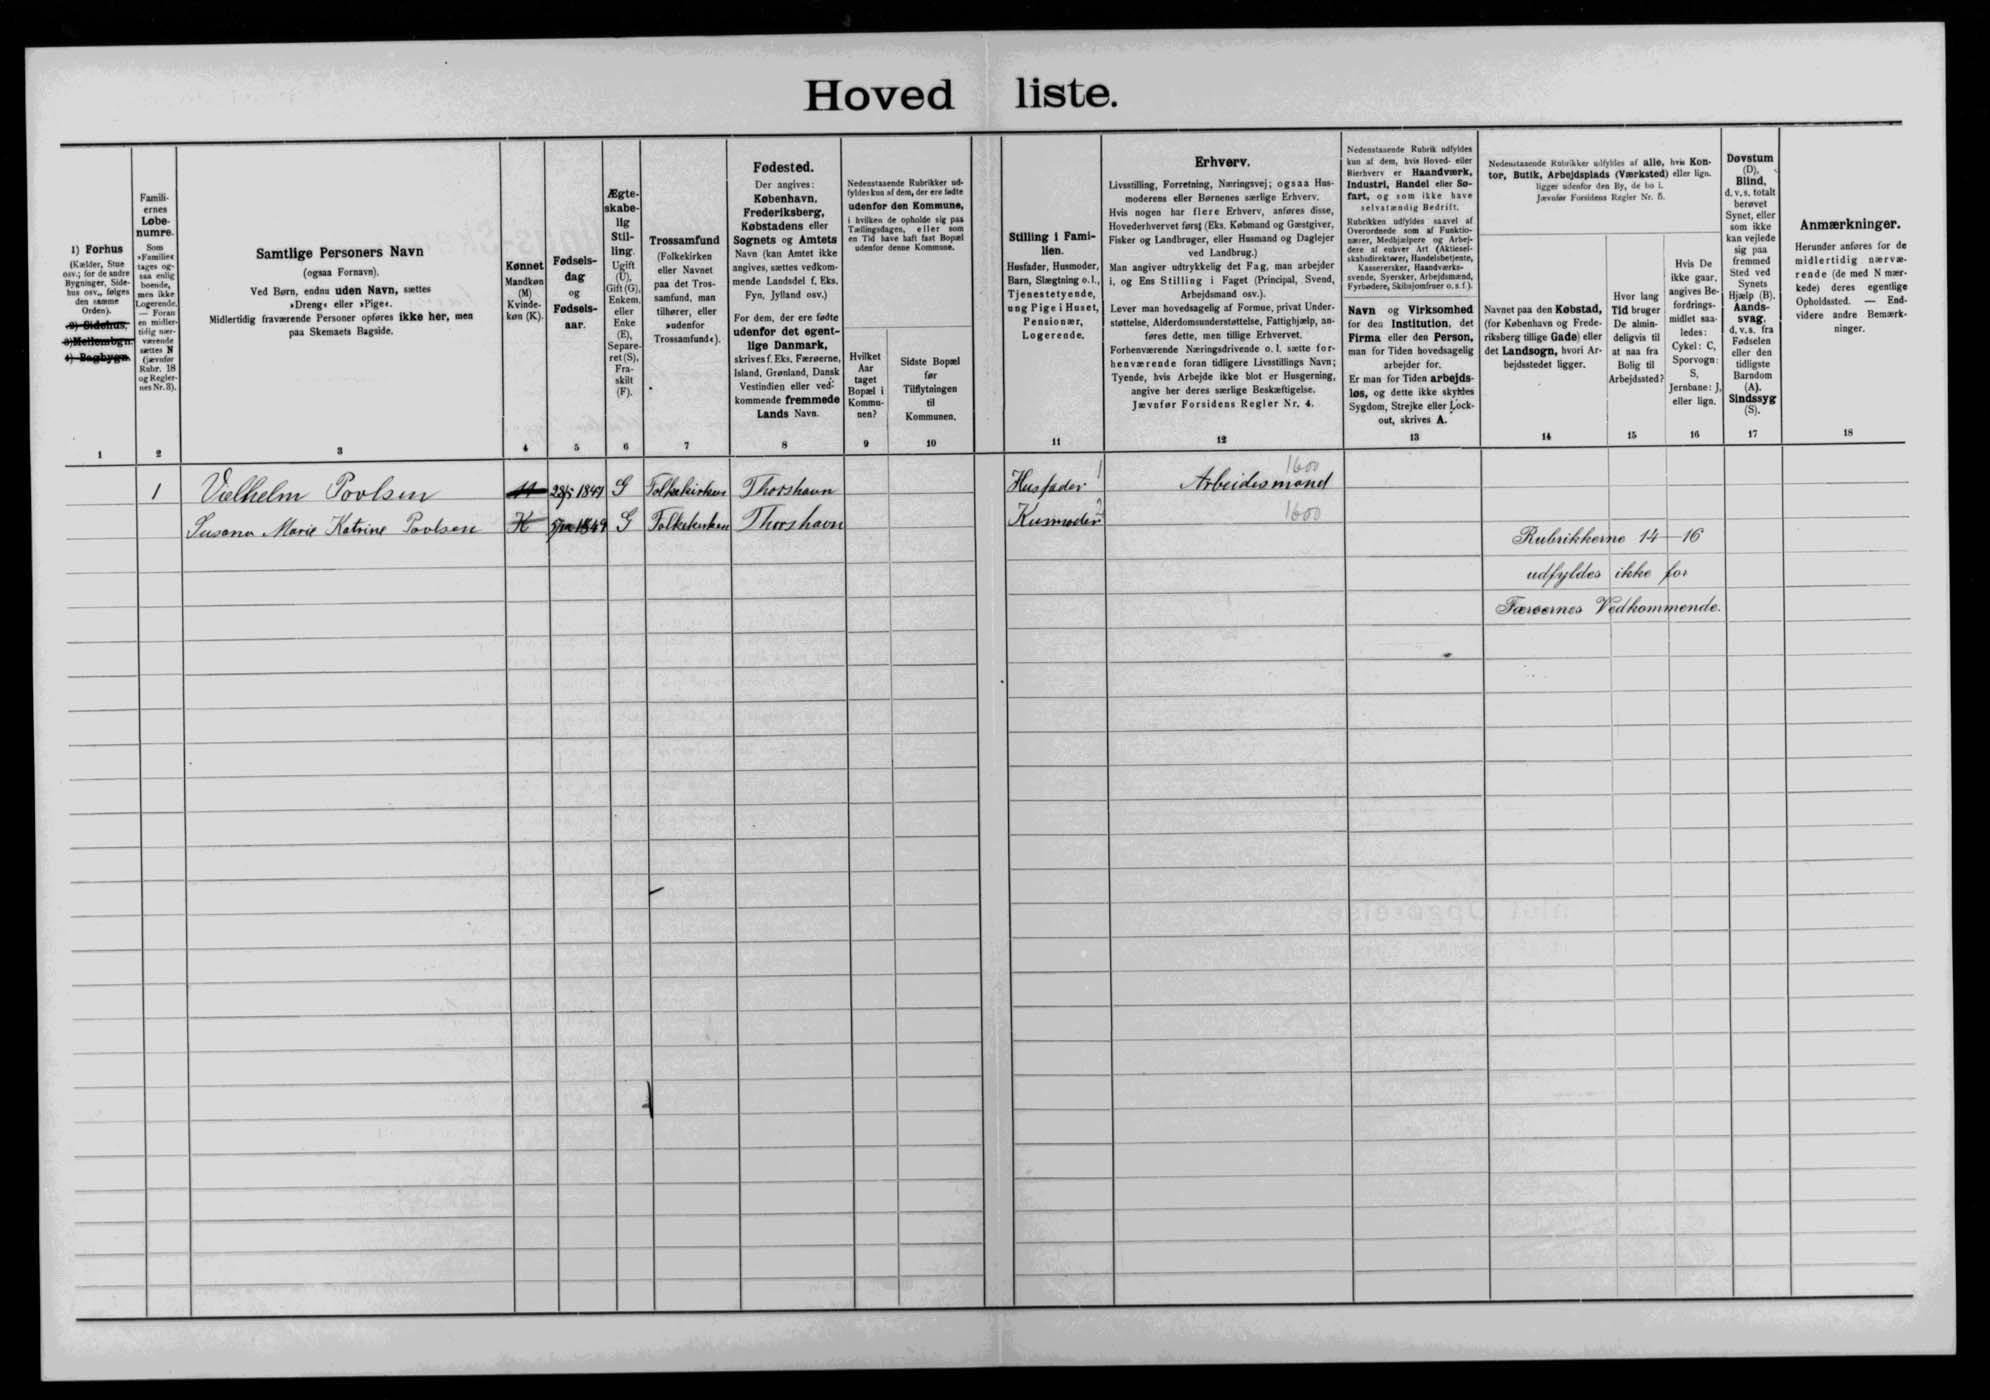 Hoved liste.
1) Forhus
(Kælder, Stue
osv.; for de andre
Bygninger, Side-
hus osv., følges
den samme
Orden).
2) Sidehus,
3) Mellembgn.
4) Bagbygn.
1
Famili-
ernes
Løbe-
numre.
Som
»Familie«
tages og-
saa enlig
boende,
men ikke
Logerende.
— Foran
en midler-
tidig nær-
værende
sættes N
(jævnfør
Rubr. 18
og Regler-
nes Nr. 3).
2
Samtlige Personers Navn
(ogsaa Fornavn).
Ved Børn, endnu uden Navn, sættes
»Dreng« eller »Pige«.
Midlertidig fraværende Personer opføres ikke her, men
paa Skemaets Bagside.
3
Kønnet
Mandkøn
(M)
Kvinde-
køn (K).
4
Fødsels-
dag
og
Fødsels-
aar.
5
Ægte-
skabe-
lig
Stil-
ling.
Ugift
(U),
Gift (G),
Enkem.
eller
Enke
(E),
Separe-
ret (S),
Fra-
skilt
(F).
6
Trossamfund
(Folkekirken
eller Navnet
paa det Tros-
samfund, man
tilhører, eller
»udenfor
Trossamfund«).
7
Fødested.
Der angives:
København,
Frederiksberg,
Købstadens eller
Sognets og Amtets
Navn (kan Amtet ikke
angives, sættes vedkom-
mende Landsdel f. Eks.
Fyn, Jylland osv.)
For dem, der ere fødte
udenfor det egent-
lige Danmark,
skrives f. Eks. Færøerne,
Island, Grønland, Dansk
Vestindien eller ved-
kommende fremmede
Lands Navn.
8
Nedenstaaende Rubrikker ud-
fyldes kun af dem, der ere fødte
udenfor den Kommune,
i hvilken de opholde sig paa
Tællingsdagen, eller som
en Tid have haft fast Bopæl
udenfor denne Kommune.
Hvilket
Aar
taget
Bopæl i
Kommu-
nen?
9
Sidste Bopæl
før
Tilflytningen
til
Kommunen.
10
Stilling i Fami-
lien.
Husfader, Husmoder,
Barn, Slægtning o.l.,
Tjenestetyende,
ung Pige i Huset,
Pensionær,
Logerende.
11
Erhverv.
Livsstilling, Forretning, Næringsvej; ogsaa Hus-
moderens eller Børnenes særlige Erhverv.
Hvis nogen har flere Erhverv, anføres disse,
Hovederhvervet først (Eks. Købmand og Gæstgiver,
Fisker og Landbruger, eller Husmand og Daglejer
ved Landbrug.)
Man angiver udtrykkelig det Fag, man arbejder
i, og Ens Stilling i Faget (Principal, Svend,
Arbejdsmand osv.).
Lever man hovedsagelig af Formue, privat Under-
støttelse, Alderdomsunderstøttelse, Fattighjælp, an-
føres dette, men tillige Erhvervet.
Forhenværende Næringsdrivende o. l. sætte for-
henværende foran tidligere Livsstillings Navn;
Tyende, hvis Arbejde ikke blot er Husgerning,
angive her deres særlige Beskæftigelse.
Jævnfør Forsidens Regler Nr. 4.
12
Nedenstaaende Rubrik udfyldes
kun af dem, hvis Hoved- eller
Bierhverv er Haandværk,
Industri, Handel eller Sø-
fart, og som ikke have
selvstændig Bedrift.
Rubrikken udfyldes saavel af
Overordnede som af Funktio-
nærer, Medhjælpere og Arbej-
dere af enhver Art (Aktiesel-
skabsdirektører, Handelsbetjente,
Kassererske, Haandværks-
svende, Syersker, Arbejdsmænd,
Fyrbødere, Skibsjomfruer o. s. f.).
Navn og Virksomhed
for den Institution, det
Firma eller den Person,
man for Tiden hovedsagelig
arbejder for.
Er man for Tiden arbejds-
løs, og dette ikke skyldes
Sygdom, Strejke eller Lock-
out, skrives A.
13
Nedenstaaende Rubrikker udfyldes af alle, hvis Kon-
tor, Butik, Arbejdsplads (Værksted) eller lign.
ligger udenfor den By, de bo i.
Jævnfør Forsidens Regler Nr. 5.
Navnet paa den Købstad,
(for København og Frede-
riksberg tillige Gade) eller
det Landsogn, hvori Ar-
bejdsstedet ligger.
14
Hvor lang
Tid bruger
De almin-
deligvis til
at naa fra
Bolig til
Arbejdssted?
15
Hvis De
ikke gaar,
angives Be-
fordrings-
midlet saa-
ledes:
Cykel: C,
Sporvogn:
S,
Jernbane: J,
eller lign.
16
Døvstum
(D),
Blind,
d. v. s. totalt
berøvet
Synet, eller
som ikke
kan vejlede
sig paa
fremmed
Sted ved
Synets
Hjælp (B).
Aands-
svag,
d. v. s. fra
Fødselen
eller den
tidligste
Barndom
(A).
Sindssyg
(S).
17
Anmærkninger.
Herunder anføres for de
midlertidig nærvæ-
rende (de med N mær-
kede) deres egentlige
Opholdssted. — End-
videre andre Bemærk-
ninger.
18
1 Vielhelm Povlsen M 1849 G Folkekirken Thorshavn Husfader 1 Arbeidesmand 1600
Susana Marie Katrine Povlsen K 1849 G Folkekirken Thorshavn Husmoder 2 1600
Rubrikkerne 14-16
udfyldes ikke for
Færøernes Vedkommende.